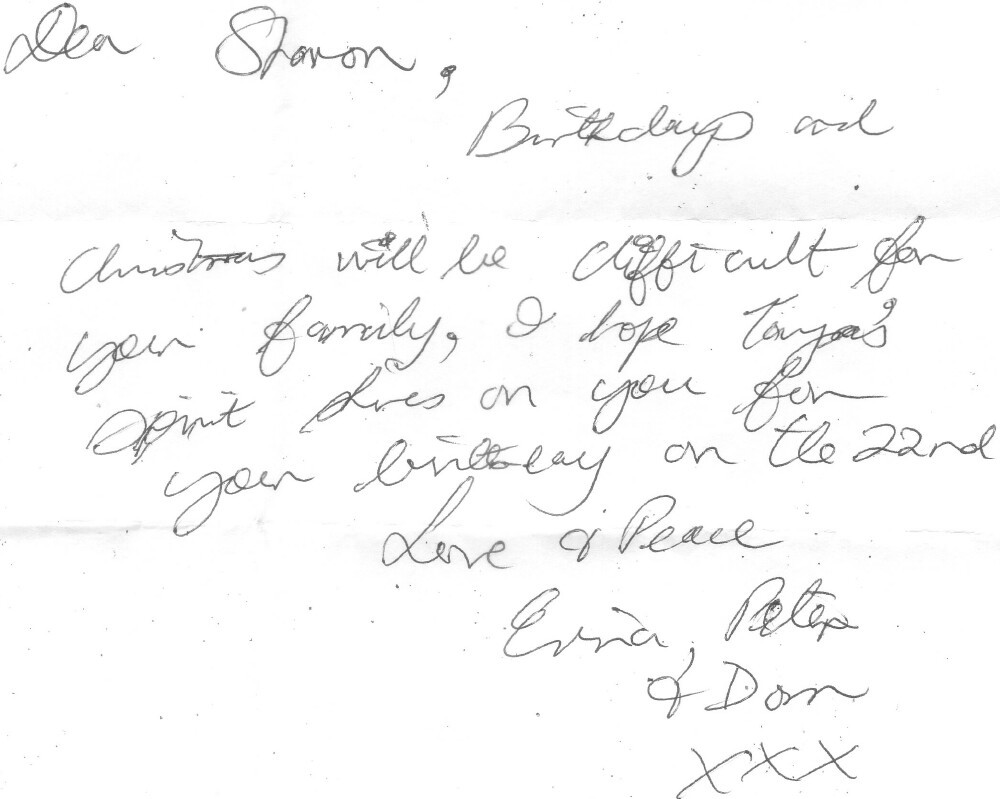 Dear Sharon,
Birthdays and
Christmas will be difficult for
your family, I hope Tanya's
spirit shines on you for
your birthday on the 22nd
Love & Peace
Erina, Peter
& Dom
XXX